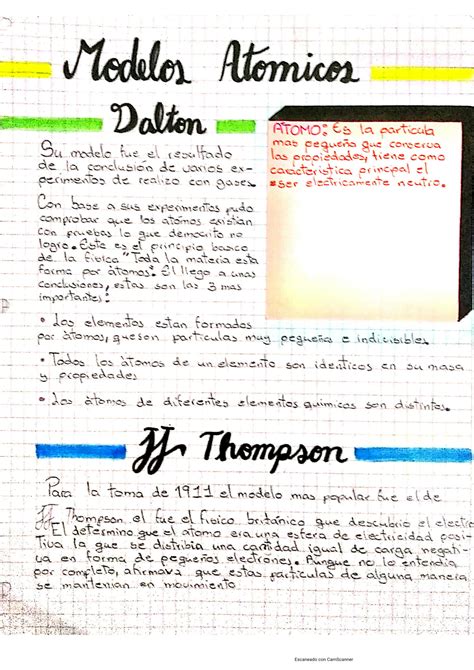 Modelos Atomicos
Dalton
ATOMO: Es la particula
mas pequeña que concerva
las propiedades, tiene como
caracteristica principal el
*ser electricamente neutro.
Su modelo fue el resultado
de la conclusión de varios ex-
perimentos de realizo con gases.
Con base a sus experimentos pudo
comprobar que los atomos existian
con pruebas lo que democrito no
logro. Este es el principio basico
de la fisica "Toda la materia esta
forma por àtomos". El llego a unas
conclusiones, estas son las 3 mas
importantes:
• Los elementos estan formados
por àtomos, queson particulas muy pequeñas e indicisibles
• Todos los àtomos de un elemento son identicos en su masa
y propiedades
• Los àtomos de diferentes elementos quimicos son distintos.
JJ Thompson
Para la toma de 1911 el modelo mas popular fue el de
JJ Thompson, el fue el fisico británico que descubrio el electro
El determino que el atomo era una esfera de electricidad posi-
tiva la que se distribia una cantidad igual de carga negati-
va en forma de pequeños electrones. Aunque no lo entendia
por completo, afirmava que estas particulas de alguna manera
se mantenian en movimiento
Escaneado con CamScanner